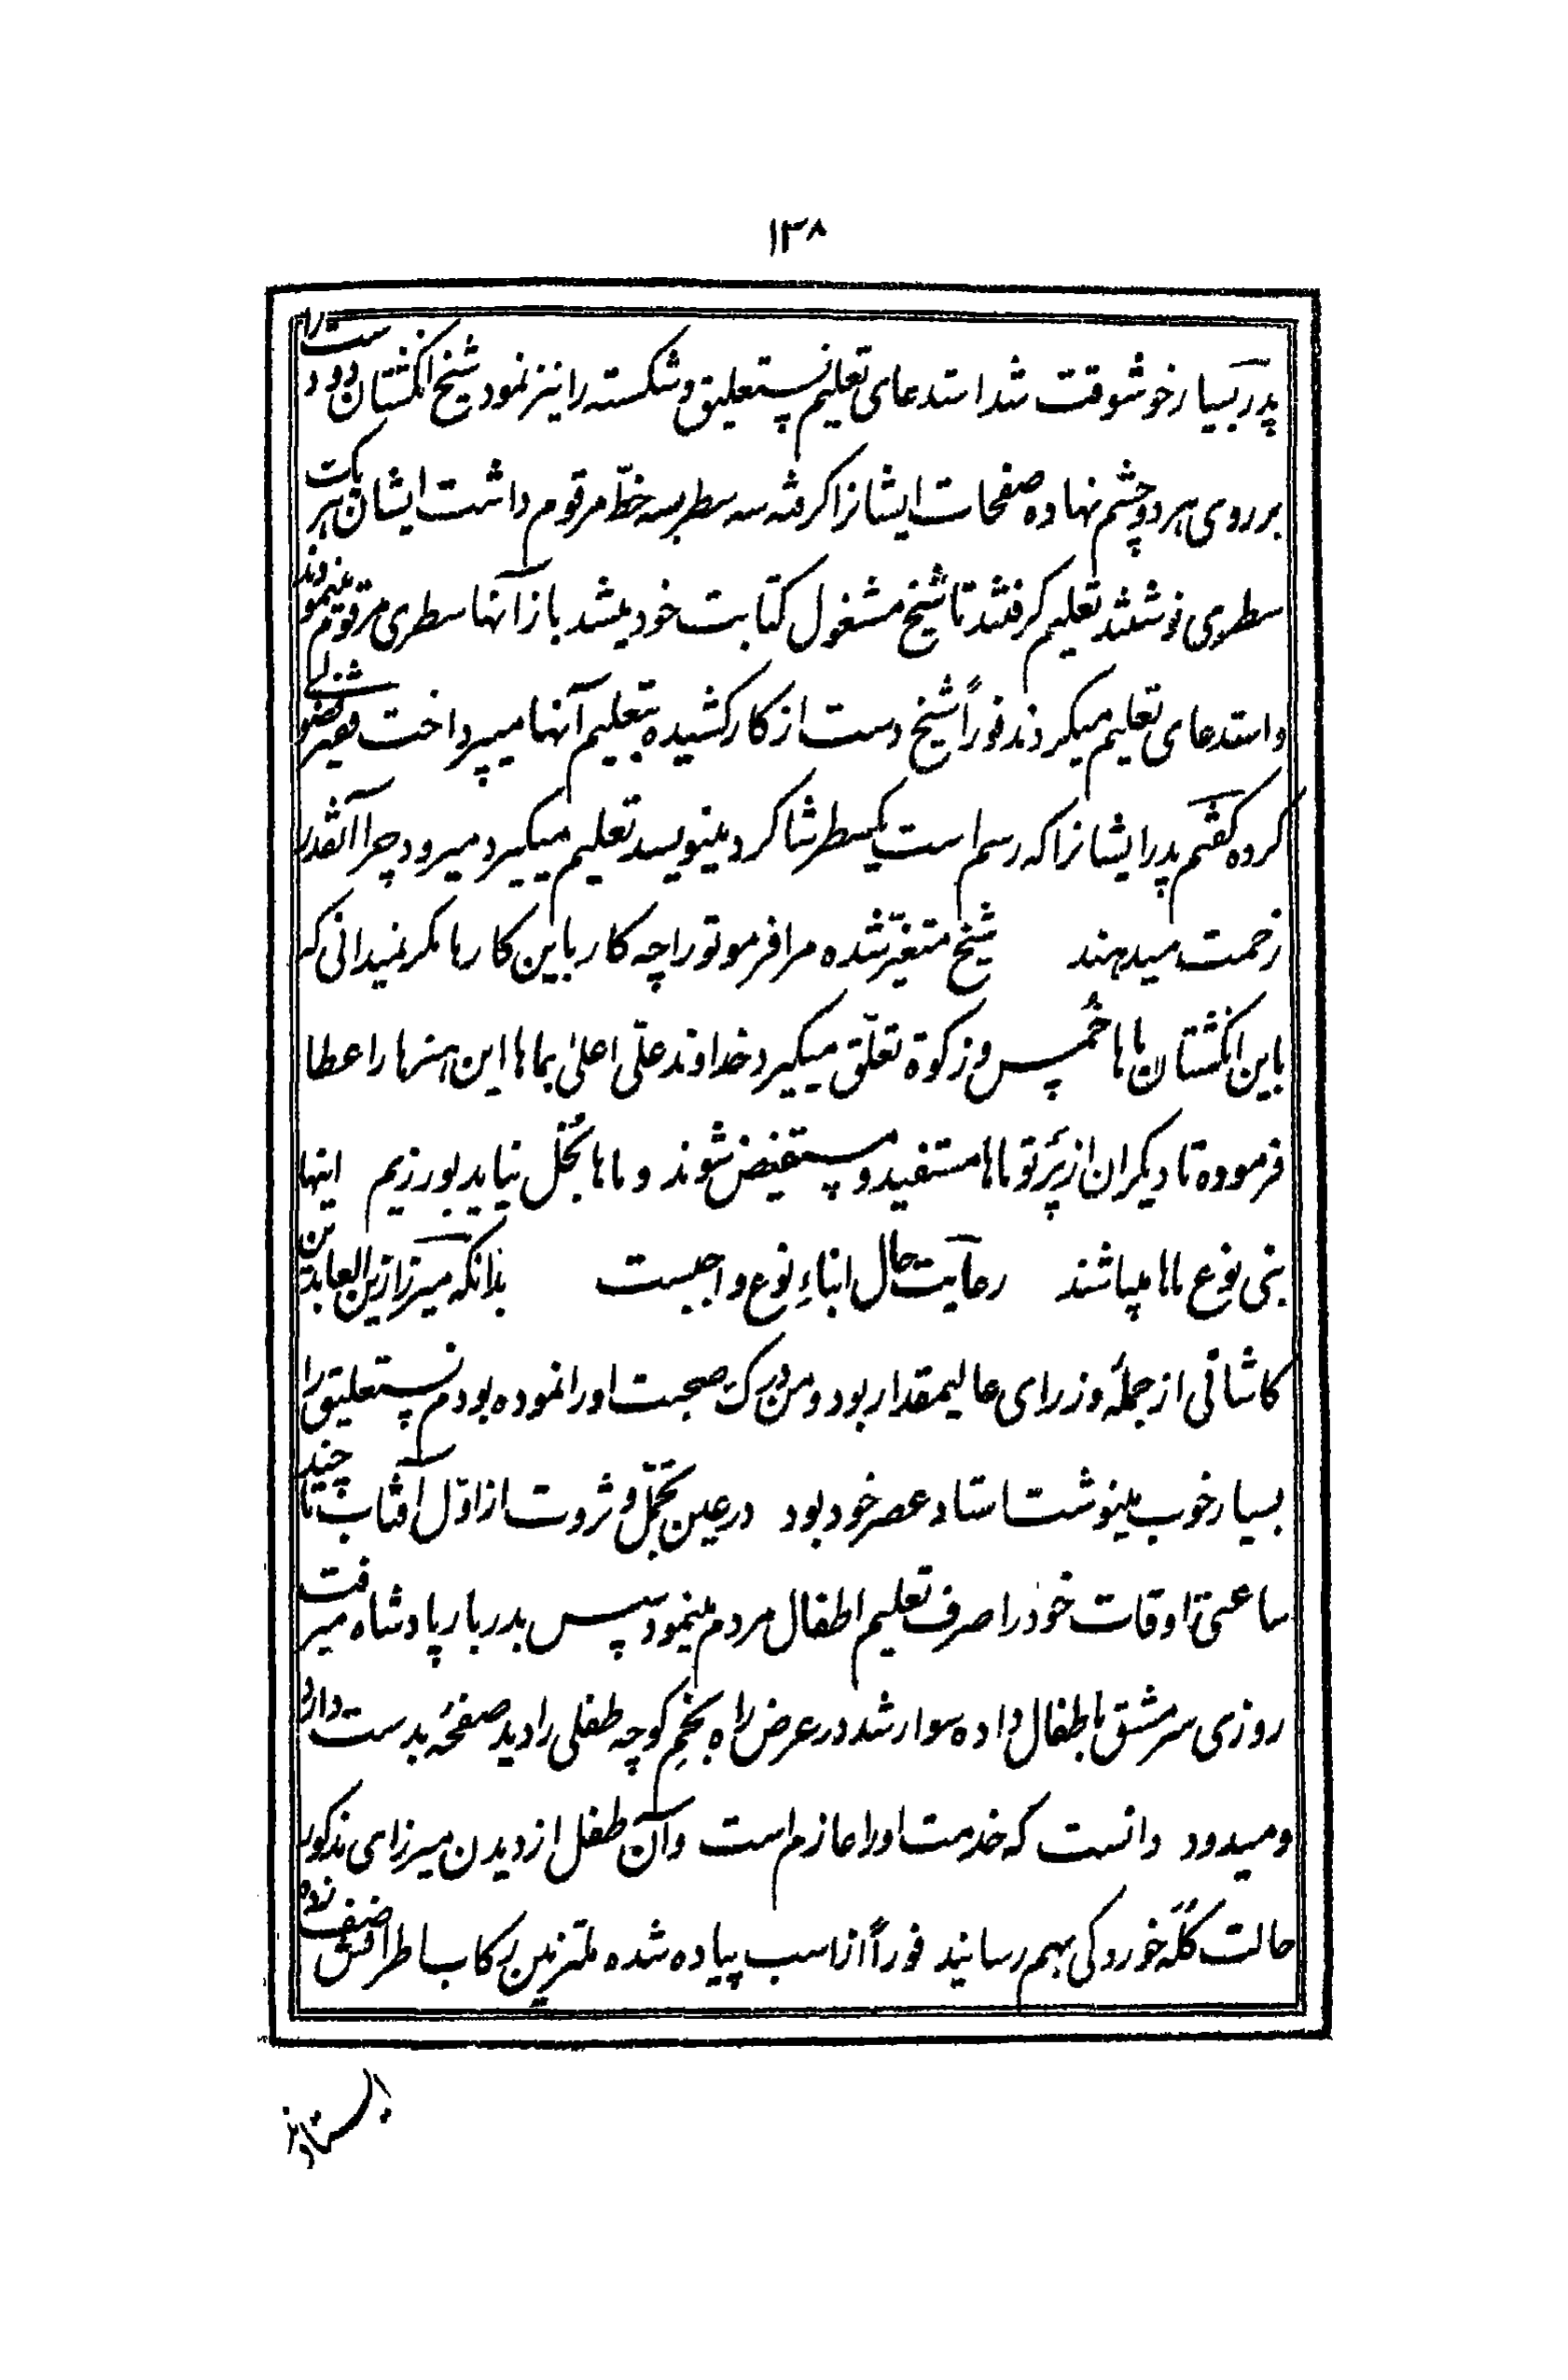 ۱۳۸
پدر بسیار خوشوقت شد استدعای تعلیم نستعلیق و شکسته را نیز نمود شیخ انگشتان دو دست را
بر روی هر دو چشم نهاده صفحات ایشانرا گرفته سه سطر بسه خطّ مرقوم داشت ایشان هر یک
سطری نوشتند تعلیم گرفتند تا شیخ مشغول کتابت خود میشد باز آنها سطری مرقوم مینمودند
و استدعای تعلیم میکردند فوراً شیخ دست از کار کشیده بتعلیم آنها میپرداخت فقیر فضولی
کرده گفتم پدر ایشانرا که رسم است یکسطر شاگرد مینویسد تعلیم میگیرد میرود چرا آنقدر
زحمت میدهند شیخ متغیّر شده مرا فرمو تو را چه کار باین کارها مگر نمیدانی که
باین انگشتان ماها خُمس و زکوة تعلّق میگیرد خداوند علّی اعلیٰ بماها این هنرها را عطا
فرموده تا دیگران از پَرتو ماها مستفید و مستفیض شوند و ماها بُخل نباید بورزیم اینها
بنی نوع ماها میباشند رعایت حال ابناءِ نوع واجبست بدانکه میرزا زین العابدین
کاشانی از جملهٔ وزرای عالیمقدار بود و من درک صحبت او را نموده بودم نستعلیق را
بسیار خوب مینوشت استاد عصر خود بود در عین تجمّل و ثروت از اوّل آفتاب تا چند
ساعتی اوقات خود را صرف تعلیم اطفال مردم مینمود سپس بدربار پادشاه میرفت
روزی سرمشق باطفال داده سوار شد در عرض راه بخمِ کوچه طفلی را دید صفحهٔ بدست دارد
و میدود دانست که خدمت او را عازم است و آن طفل از دیدن میرزای مذکور
حالت کلّه خوردگی بهم رسانید فوراً از اسب پیاده شده ملتزمین رکاب باطرافش صف زده